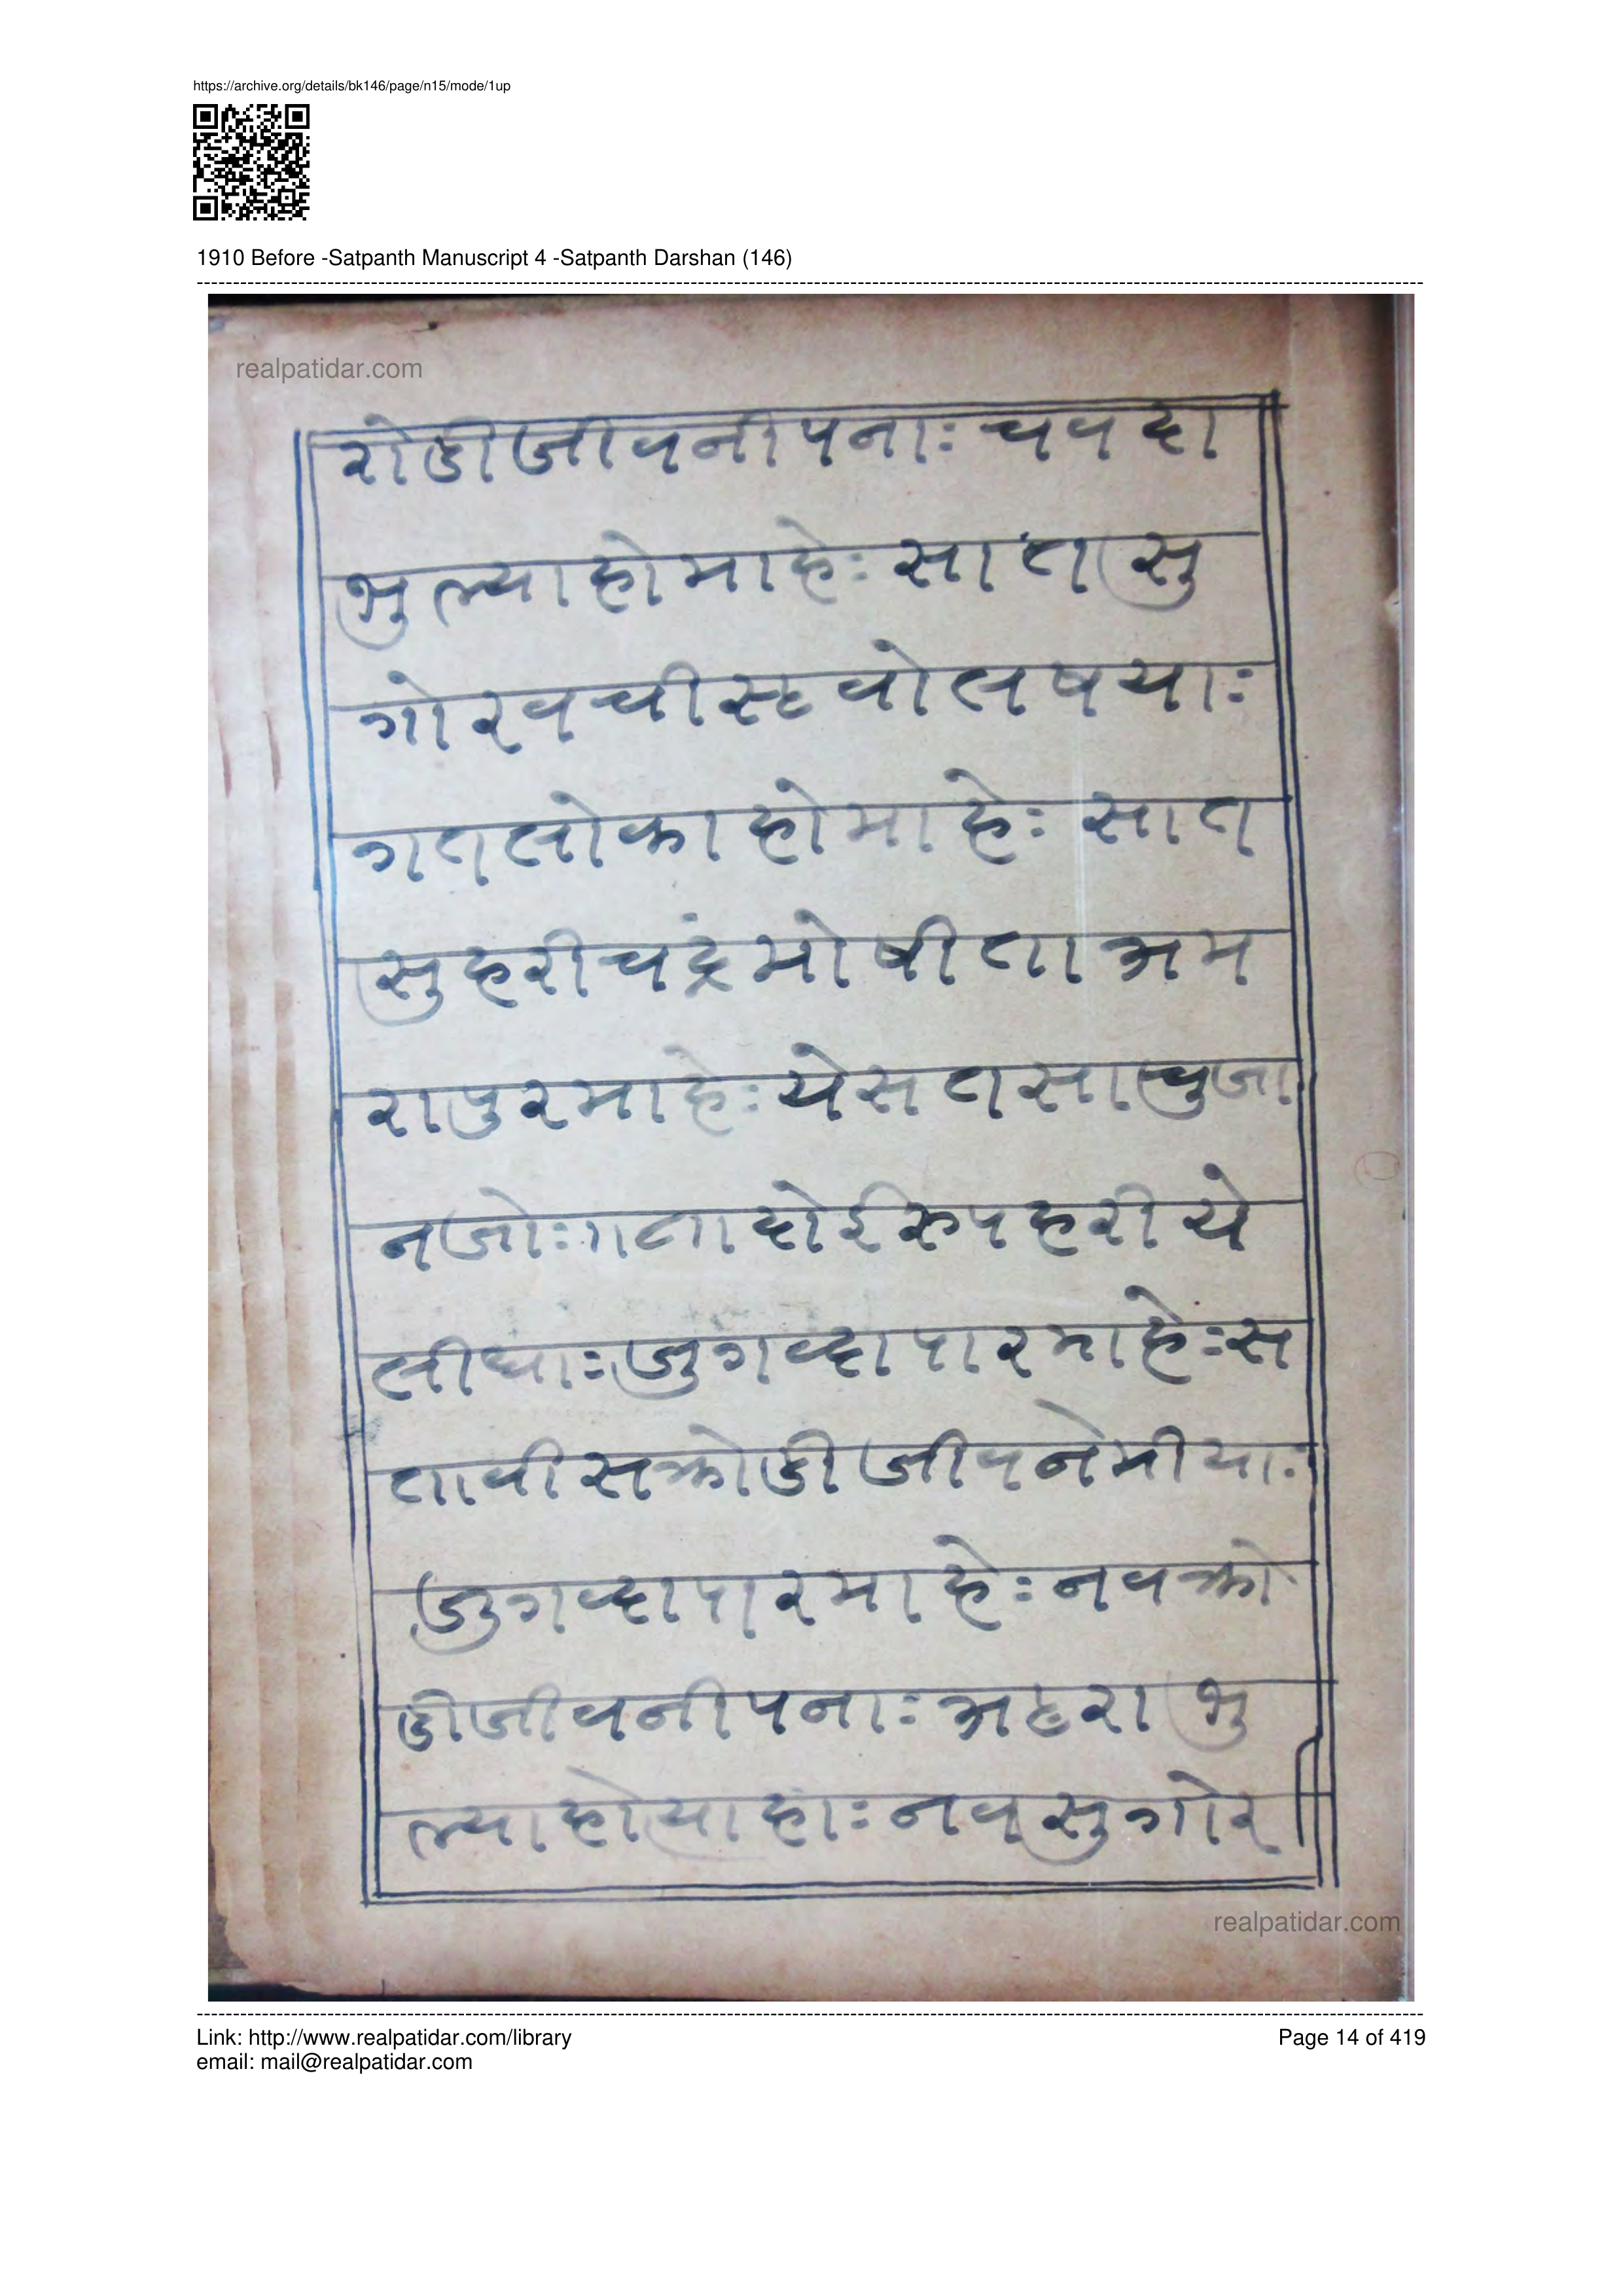 https://archive.org/details/bk146/page/n15/mode/1up
1910 Before -Satpanth Manuscript 4 -Satpanth Darshan (146)
realpatidar.com
रोडीजीवनीपनाः चवदा
भुल्याहोमाहेः सातसु
गोरवचीस्टवोलषयाः
गतलोकाहोमाहेः सात
सुहरीचद्रंमोषीताअम
रापुरमाहेः येसतसाचुजा
नजोः॥ताहोईरुपहरीये
लीधाः जुगव्दापारमाहेः स
तावीसक्रोडीजीवनेमीयाः
जुगव्दापारमाहेः नवक्रो
डीजीवनीपनाः अहरा भु
ल्याहोयाहाः नवसुगोर
realpatidar.com
Link: http://www.realpatidar.com/library
Page 14 of 419
email: mail@realpatidar.com